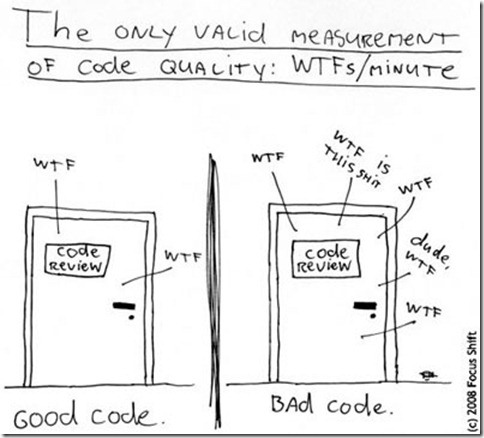 The ONLY VALID MEASUREMENT
OF Code QUALITY: WTFs/MINUTE
WTF
CODE
REVIEW
WTF
GOOD CODE.
WTF
WTF IS
THIS SHIT
WTF
CODE
REVIEW
dude,
WTF
WTF
BAD CODE.
(c) 2008 Focus Shift